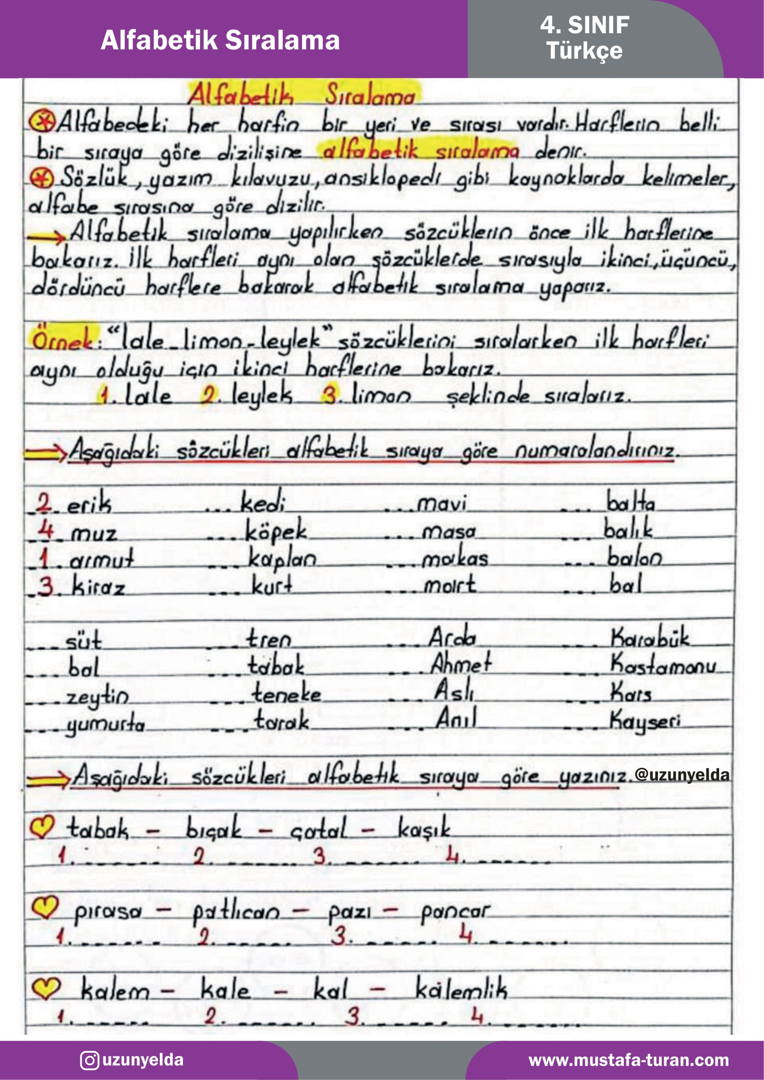 Alfabetik Sıralama
4. SINIF
Türkçe
Alfabetik Sıralama
Alfabedeki her harfin bir yeri ve sırası vardır. Harflerin belli
bir sıraya göre dizilişine alfabetik sıralama denir.
Sözlük, yazım kılavuzu, ansiklopedi gibi kaynaklarda kelimeler,
alfabe sırasına göre dizilir.
Alfabetik sıralama yapılırken sözcüklerin önce ilk harflerine
bakarız. İlk harfleri aynı olan sözcüklerde sırasıyla ikinci, üçüncü,
dördüncü harflere bakarak alfabetik sıralama yaparız.
Örnek: “lale-limon-leylek” sözcüklerini sıralarken ilk harfleri
aynı olduğu için ikinci harflerine bakarız.
1. lale 2. leylek 3. limon şeklinde sıralarız.
Aşağıdaki sözcükleri alfabetik sıraya göre numaralandırınız.
2. erik ... kedi ... mavi ... balta
4. muz ... köpek ... masa ... balık
1. armut ... kaplan ... makas ... balon
3. kiraz ... kurt ... mart ... bal
... süt ... tren ... Arda ... Karabük
... bal ... tabak ... Ahmet ... Kastamonu
... zeytin ... teneke ... Aslı ... Kars
... yumurta ... tarak ... Anıl ... Kayseri
Aşağıdaki sözcükleri alfabetik sıraya göre yazınız. @uzunyelda
tabak - bıçak - çatal - kaşık
1. ....... 2. ....... 3. ....... 4. .......
pırasa - patlıcan - pazı - pancar
1. ....... 2. ....... 3. ....... 4. .......
kalem - kale - kal - kalemlik
1. ....... 2. ....... 3. ....... 4. .......
uzunyelda
www.mustafa-turan.com